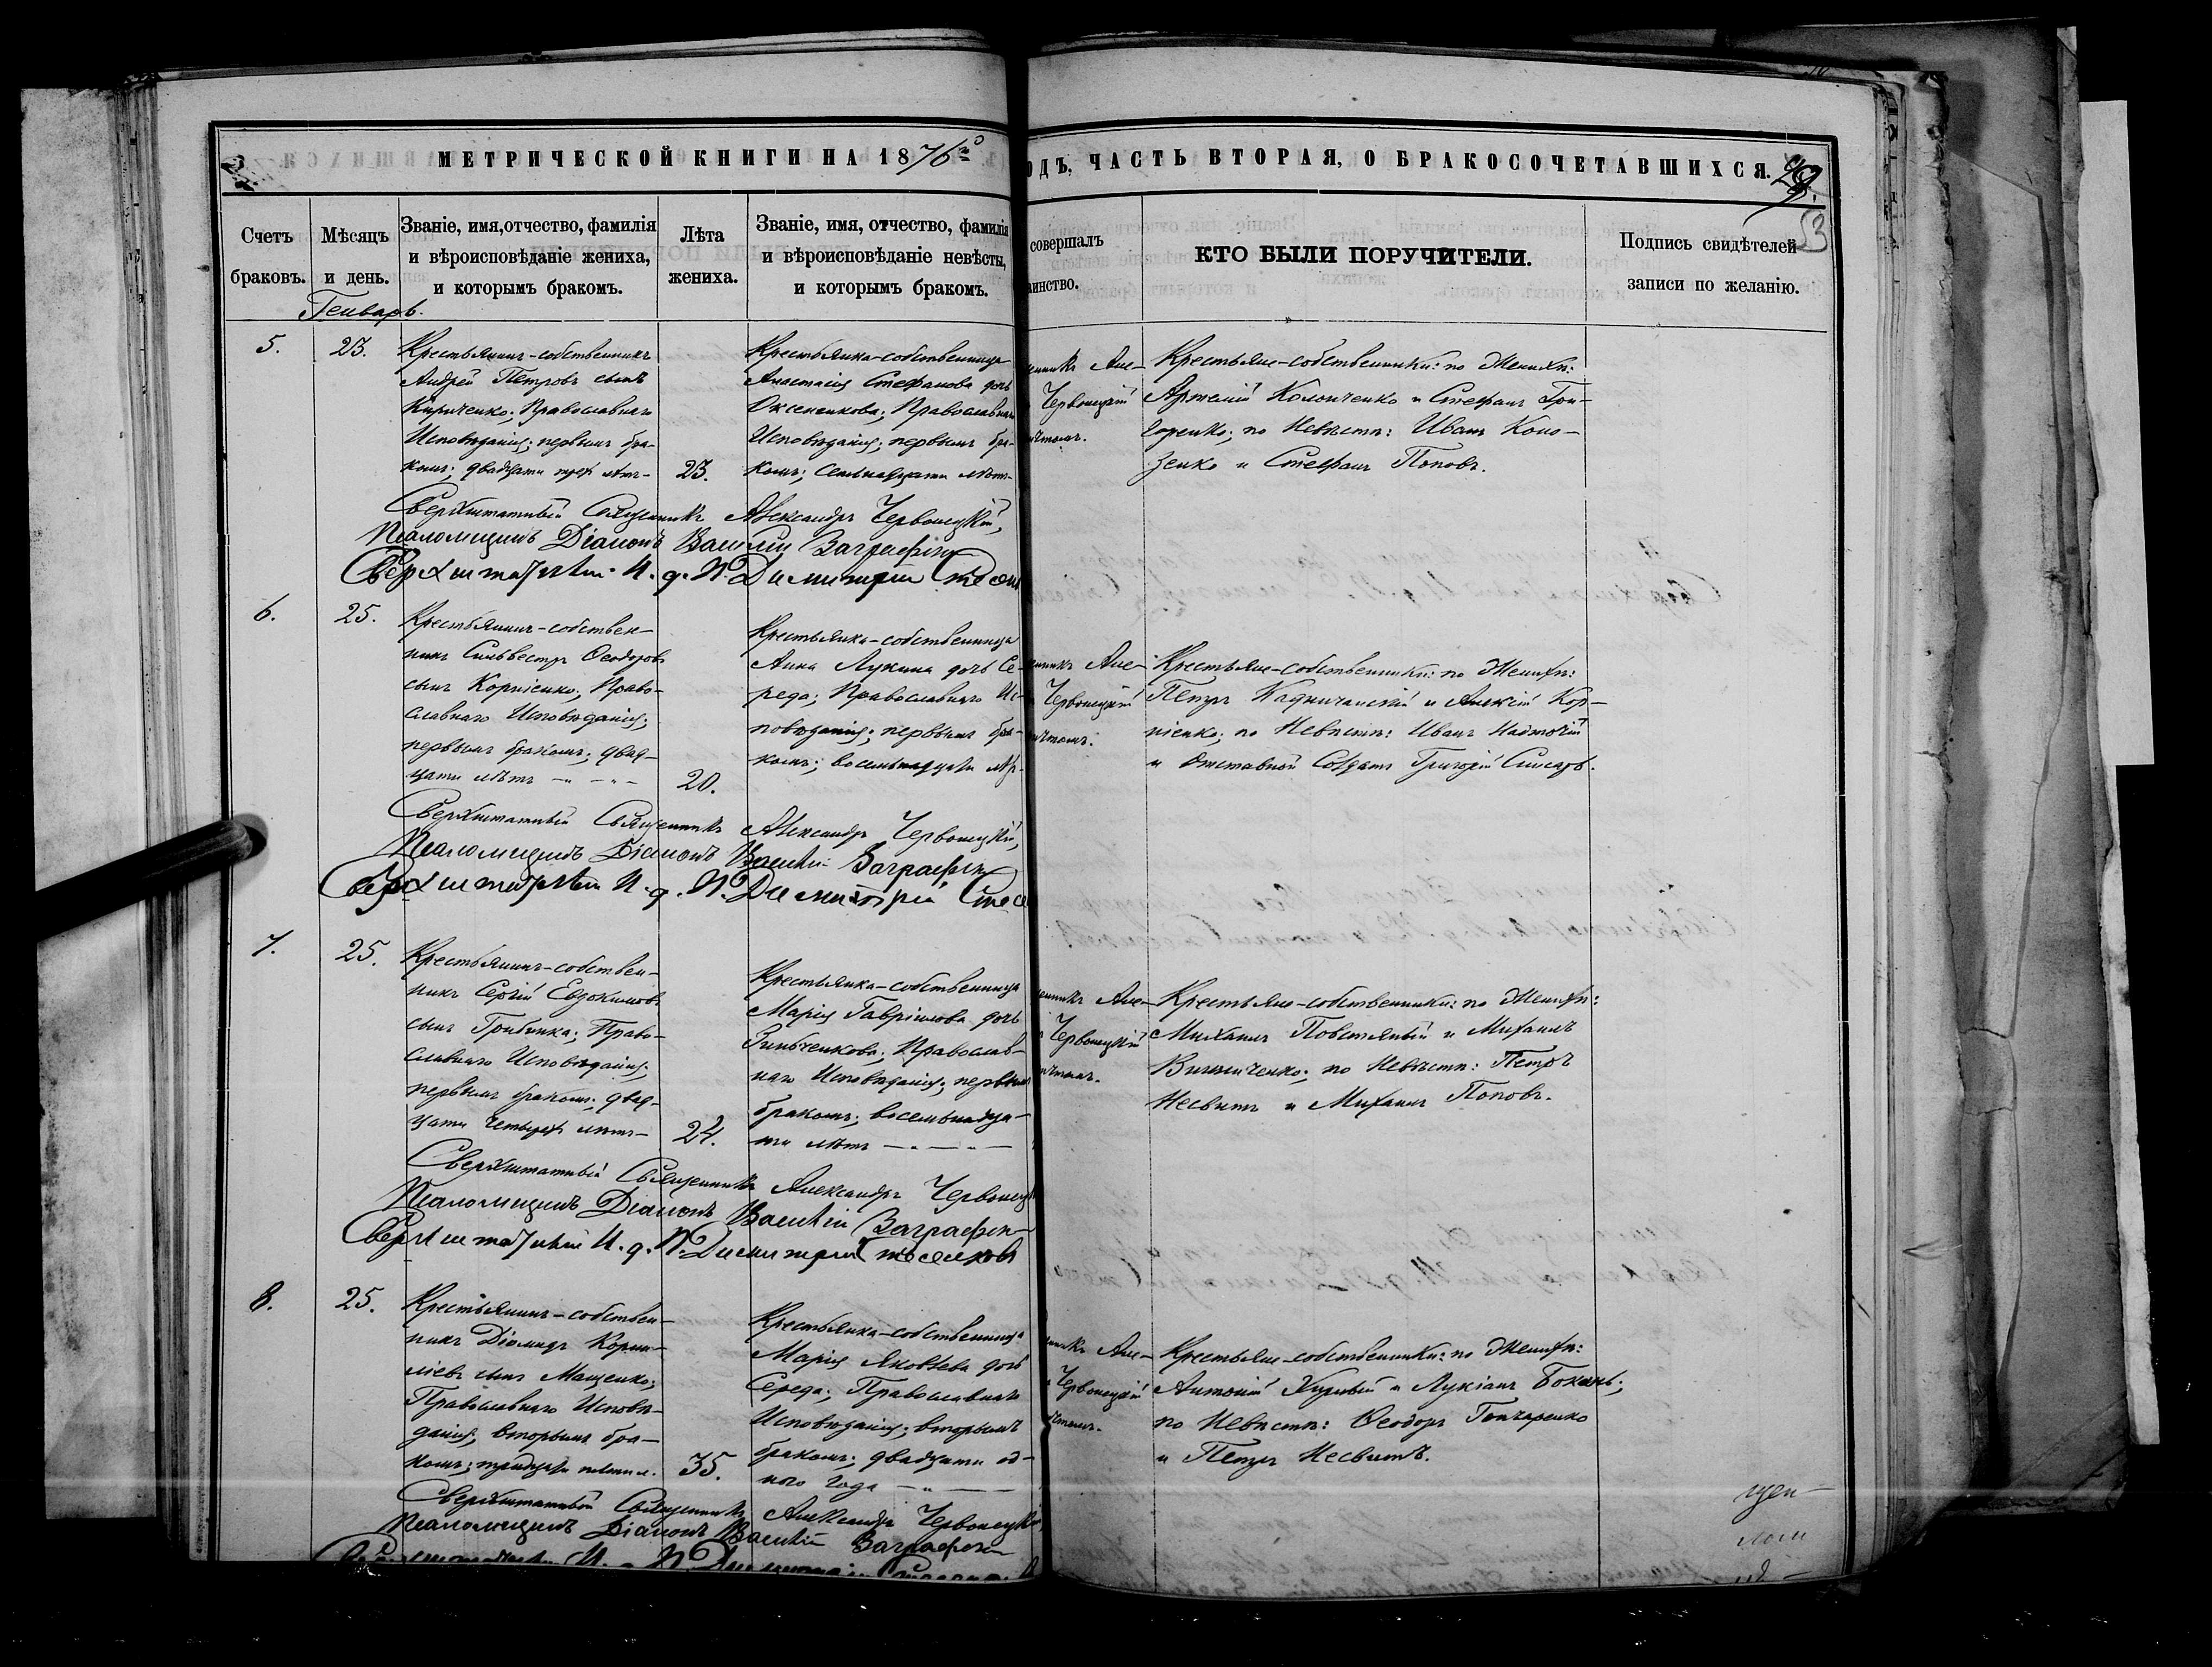 МЕТРИЧЕСКОЙ КНИГИ НА 1876го
ОДЪ, ЧАСТЬ ВТОРАЯ, О БРАКОСОЧЕТАВШИХСЯ.
53
Счетъ браковъ.
Мѣсяцъ и день.
Званіе, имя, отчество, фамилія
и вѣроисповѣданіе жениха,
и которымъ бракомъ.
Лѣта
жениха.
Званіе, имя, отчество, фамилія
и вѣроисповѣданіе невѣсты,
и которымъ бракомъ.
совершалъ
аинство.
КТО БЫЛИ ПОРУЧИТЕЛИ.
Подпись свидѣтелей
записи по желанію.
Генварь.
5.
23.
Крестьянинъ-собственникъ
Андрей Петровъ сынъ
Кириченко; Православнаго
Исповѣданія; первымъ бра-
комъ; двадцати трехъ лѣтъ-
23.
Крестьянка-собственница
Анастасія Стефанова дочь
Оксененкова; Православнаго
Исповѣданія; первымъ бра-
комъ; семнадцати лѣтъ-
енникъ Але-
Червонецкій
ичтомъ.
Крестьяне-собственники: по Женихѣ:
Артемій Коломченко и Стефанъ Гри-
горенко; по Невѣстѣ: Иванъ Коно-
зенко и Стефанъ Поповъ.
Сверхштатный Священникъ Александръ Червонецкій,
Псаломщикъ Діаконъ Василій Заграфск
Сверхштатный И. д. П. Димитрій
6.
25.
Крестьянинъ-собствен-
никъ Сильвестръ Ѳеодоровъ
сынъ Корніенко; Право-
славнаго Исповѣданія;
первымъ бракомъ; двад-
цати лѣтъ
20.
Крестьянка-собственница
Анна Лукина дочь Се-
реда; Православнаго Ис-
повѣданія; первымъ бра-
комъ; восемнадцати лѣт.
енникъ Але-
Червонецкій
ичтомъ.
Крестьяне-собственники: по Женихѣ:
Петръ и Алексій Кор-
ніенко; по Невѣстѣ: Иванъ
и Отставной Солдатъ Григорій Слисарь.
Сверхштатный Священникъ Александръ Червонецкій,
Псаломщикъ Діаконъ Василій Заграфск
Сверхштатный И. д. П. Димитрій
7.
25.
Крестьянинъ-собствен-
никъ Сергій Евдокимовъ
сынъ Грибинка; Право-
славнаго Исповѣданія;
первымъ бракомъ; двад-
цати четырехъ лѣтъ-
24.
Крестьянка-собственница
Марія Гавріилова дочь
Зинченкова; Православ-
наго Исповѣданія; первымъ
бракомъ; восемнадца-
ти лѣтъ
енникъ Але-
Червонецкій
ичтомъ.
Крестьяне-собственники: по Женихѣ:
Михаилъ Повстяный и Михаилъ
Винниченко; по Невѣстѣ: Петръ
Несвитъ и Михаилъ Поповъ.
Сверхштатный Священникъ Александръ Червонец
Псаломщикъ Діаконъ Василій Заграфск
Сверхштатный И. д. П. Димитрій
8.
25.
Крестьянинъ-собствен-
никъ Діомидъ Корни-
ліевъ сынъ Мащенко;
Православнаго Исповѣ-
данія; вторымъ бра-
комъ; тридцати пяти л.
35.
Крестьянка-собственница
Марія Яковлева дочь
Середа; Православнаго
Исповѣданія; вторымъ
бракомъ; двадцати од-
ного года
никъ Але-
Червонецкій
чтомъ.
Крестьяне-собственники: по Женихѣ:
Антоній и Лукіанъ Бокань;
по Невѣстѣ: Ѳеодоръ Гончаренко
и Петръ Несвитъ.
Сверхштатный Священникъ Александръ Червонецкій
Псаломщикъ Діаконъ Василій Заграфск